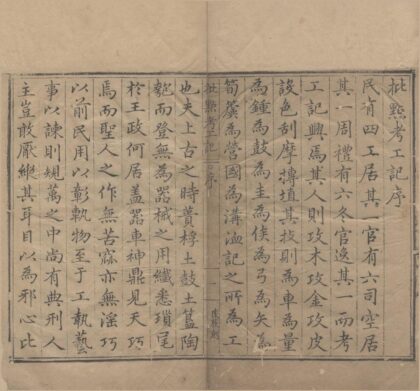 批點考工記序
民有四工居其一官有六司空居
其一周禮有六冬官逸其一而考
工記興焉其人則攻木攻金攻皮
設色刮摩摶埴其技則為車為量
為鍾為鼓為圭為侯為弓為矢為
筍虡為營國為溝洫記之所為工
也夫上古之時蕢桴土鼓土簋陶
匏而登無為器械之用纖悉瑣尾
於王政何居蓋器車神鼎見天巧
焉而聖人之作無苦窳亦無淫巧
以前民用以彰軌物至于工執藝
事以諫則規萬之中尚有典刑人
主豈敢厭縱其耳目以為邪心比
批點考工記 序
一